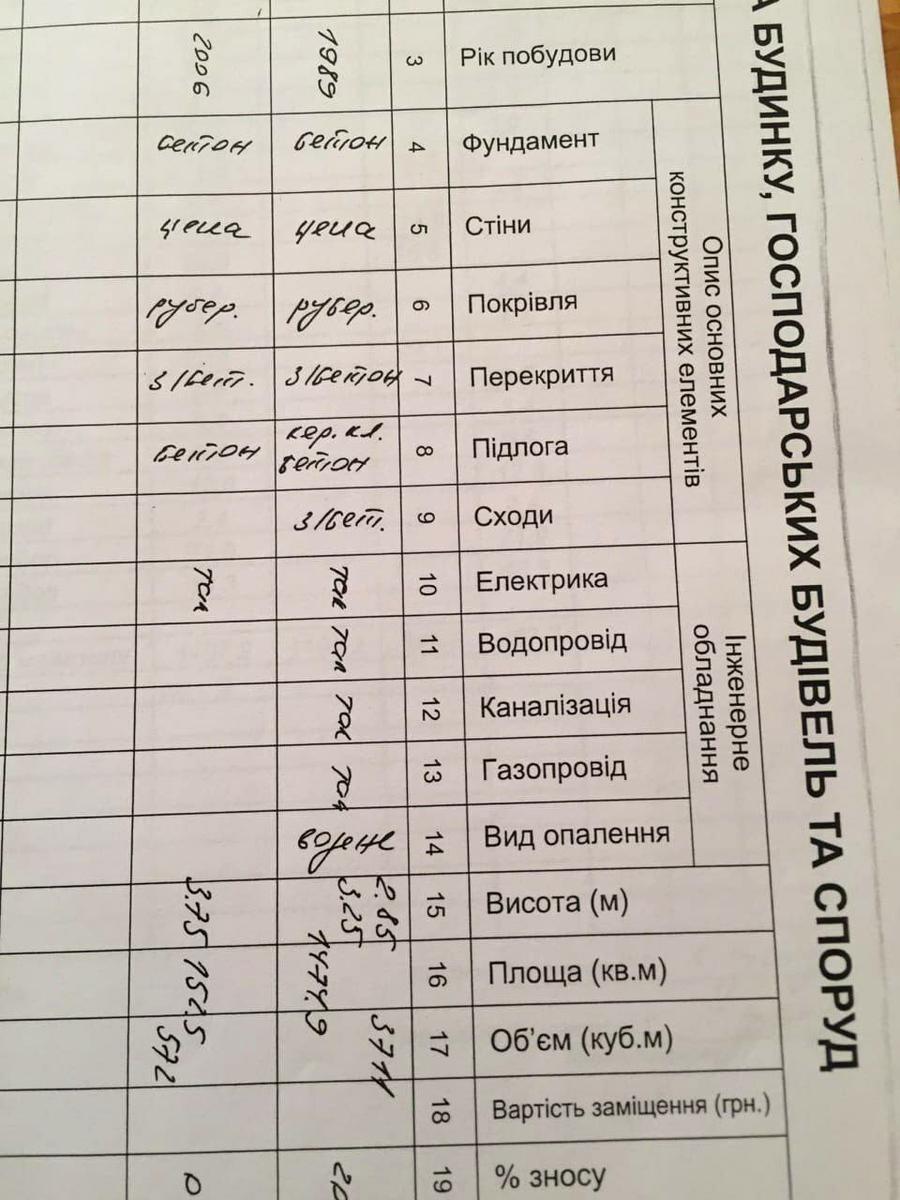 А БУДИНКУ, ГОСПОДАРСЬКИХ БУДІВЕЛЬ ТА СПОРУД
Опис основних
конструктивних елементів
Інженерне
обладнання
Рік побудови
Фундамент
Стіни
Покрівля
Перекриття
Підлога
Сходи
Електрика
Водопровід
Каналізація
Газопровід
Вид опалення
Висота (м)
Площа (кв.м)
Об'єм (куб.м)
Вартість заміщення (грн.)
% зносу
3 4 5 6 7 8 9 10 11 12 13 14 15 16 17 18 19
1989
бетон
цегла
рубер.
з/бетон
кер. кл.
бетон
з/бет.
так
так
так
так
водяне
2.85
3.25
1474,9
3711
20
2006
бетон
цегла
рубер.
з/бет.
бетон
так
3.75
152.5
572
0